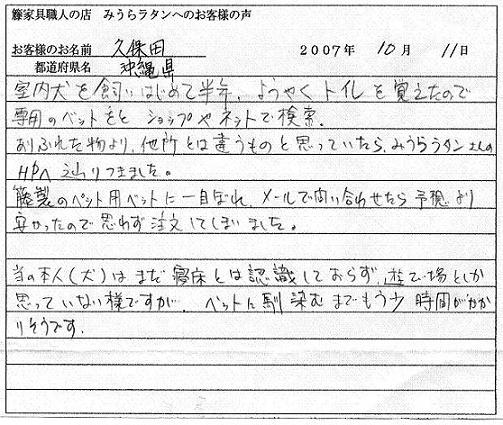 籐家具職人の店　みうらラタンへのお客様の声
お客様のお名前　久保田　2007年 10月 11日
都道府県名　沖縄県
室内犬を飼いはじめて半年、ようやくトイレを覚えたので
専用のベットをと ショップやネットで検索.
ありふれた物より、他所とは違うものと思っていたら、みうらラタンさんの
HPへ辿りつきました。
籐製のペット用ベットに一目ぼれ、メールで問い合わせたら予想より
安かったので思わず注文してしまいました。
当の本人(犬)はまだ寝床とは認識しておらず、遊び場としか
思っていない様ですが、ベットに馴染むまでもう少時間がかか
りそうです.